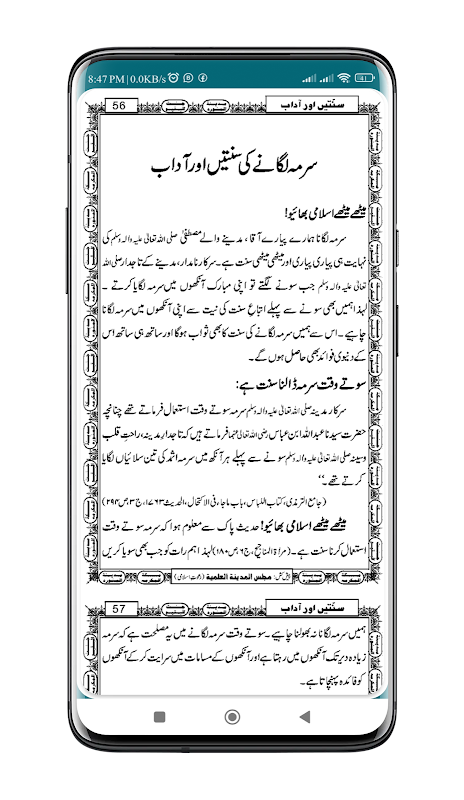 8:47 PM | 0.0KB/s
56
سنتیں اور آداب
سرمہ لگانے کی سنتیں اور آداب
میٹھے میٹھے اسلامی بھائیو!
سرمہ لگانا ہمارے پیارے آقا، مدینے والے مصطفیٰ صلی اللہ تعالیٰ علیہ والہ وسلم کی
نہایت ہی پیاری پیاری اور میٹھی میٹھی سنت ہے۔ سرکار نامدار، مدینے کے تاجدار صلی اللہ
تعالیٰ علیہ والہ وسلم جب سونے لگتے تو اپنی مبارک آنکھوں میں سرمہ لگایا کرتے۔
لہذا ہمیں بھی سونے سے پہلے اتباعِ سنت کی نیت سے اپنی آنکھوں میں سرمہ لگانا
چاہیے۔ اس سے ہمیں سرمہ لگانے کی سنت کا بھی ثواب ہوگا اور ساتھ ہی ساتھ اس
کے دنیوی فوائد بھی حاصل ہوں گے۔
سوتے وقت سرمہ ڈالنا سنت ہے:
سرکار مدینہ صلی اللہ تعالیٰ علیہ والہ وسلم سرمہ سوتے وقت استعمال فرماتے تھے چنانچہ
حضرت سیدنا عبداللہ ابن عباس رضی اللہ تعالیٰ عنہما فرماتے ہیں کہ تاجدارِ مدینہ، راحتِ قلب
وسینہ صلی اللہ تعالیٰ علیہ والہ وسلم سونے سے پہلے ہر آنکھ میں سرمہ اثمد کی تین سلائیاں لگایا
کرتے تھے۔‘‘
(جامع الترمذی، کتاب اللباس، باب ماجاء فی الاکتحال، الحدیث ۱۷۶۳، ج ۳، ص ۲۹۴)
میٹھے میٹھے اسلامی بھائیو! حدیث پاک سے معلوم ہوا کہ سرمہ سوتے وقت
استعمال کرنا سنت ہے۔ (مراٰۃ المناجیح، ج ۶، ص ۱۸۰) لہذا ہم رات کو جب بھی سویا کریں
پیش کش: مجلس المدینۃ العلمیۃ (دعوت اسلامی)
57
سنتیں اور آداب
ہمیں سرمہ لگانا نہ بھولنا چاہیے۔ سوتے وقت سرمہ لگانے میں یہ مصلحت ہے کہ سرمہ
زیادہ دیر تک آنکھوں میں رہتا ہے اور آنکھوں کے مسامات میں سرایت کر کے آنکھوں
کو فائدہ پہنچاتا ہے۔